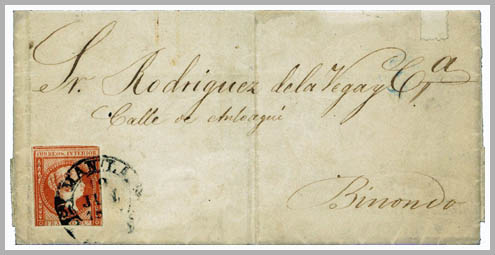 Sr. Rodriguez de la Vega y Cª
Calle de Anloagui
Binondo
CORREOS. INTERIOR
MANILA